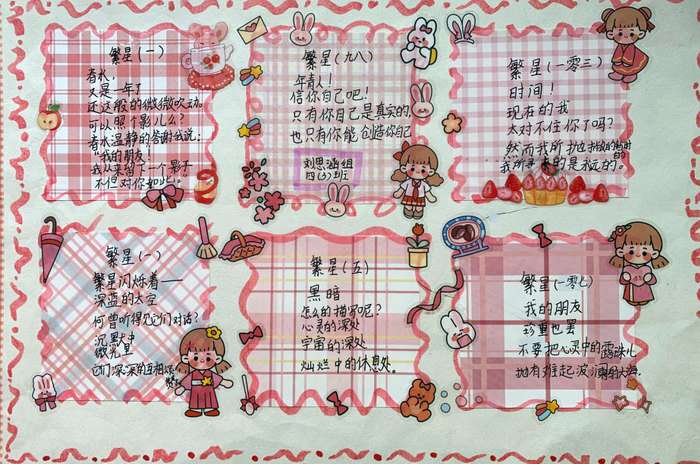 繁星（一）
春水，
又是一年了
还这般的微微吹动。
可以照个影儿么？
春水温静的答谢我说：
"我的朋友！
我从来留下一个影子
不但对你如此。"
繁星（九八）
年青人！
信你自己吧！
只有你自己是真实的，
也只有你能创造你自己
刘思涵组
四(3)班
繁星（一零三）
时间！
现在的我
太对不住你了吗？
然而我所抛撇的是暂时的
我所寻求的是永远的。
繁星（一）
繁星闪烁着——
深蓝的太空
何曾听得见它们对话？
沉默中
微光里
它们深深的互相颂赞了
繁星（五）
黑暗
怎么的描写呢？
心灵的深处
宇宙的深处
灿烂中的休息处。
繁星（一零七）
我的朋友
珍重些罢
不要把心灵中的露珠儿
抛在难起波澜的大海。